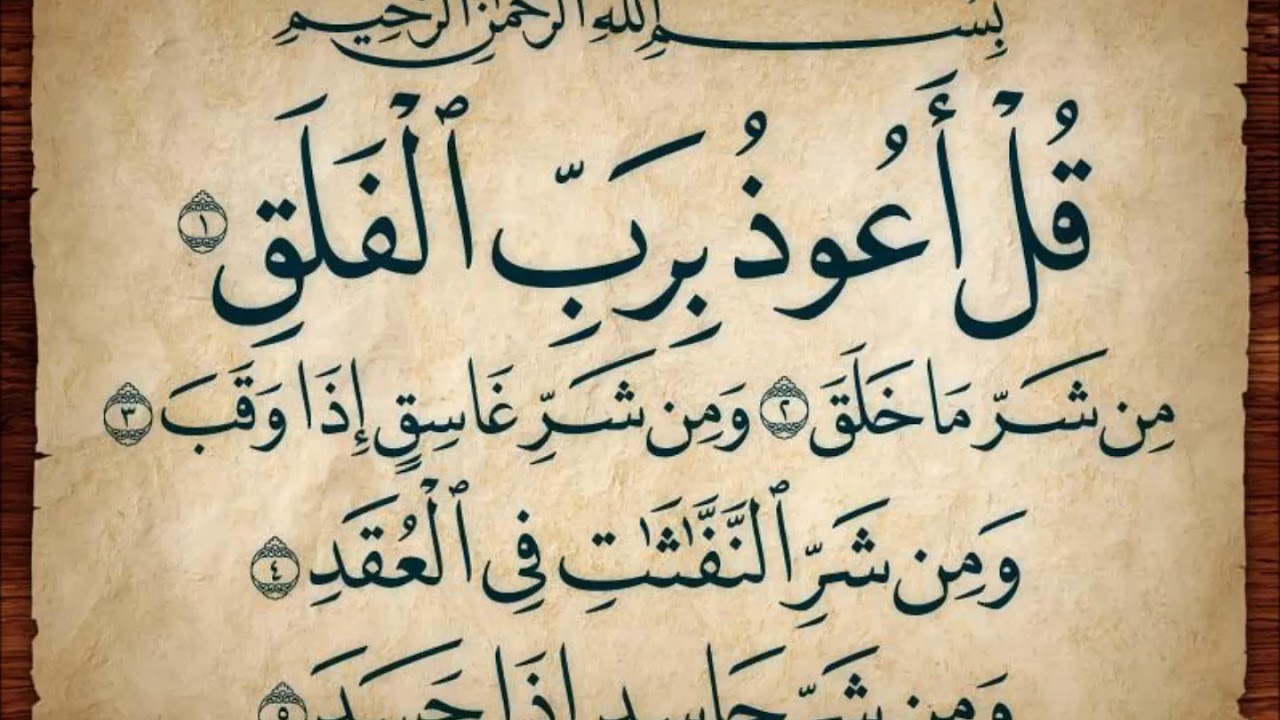 بِسْمِ اللهِ الرَّحْمٰنِ الرَّحِيمِ
قُلْ أَعُوذُ بِرَبِّ ٱلْفَلَقِ ١
مِن شَرِّ مَا خَلَقَ ٢ وَمِن شَرِّ غَاسِقٍ إِذَا وَقَبَ ٣
وَمِن شَرِّ ٱلنَّفَّٰثَٰتِ فِى ٱلْعُقَدِ ٤
وَمِن شَرِّ حَاسِدٍ إِذَا حَسَدَ ٥